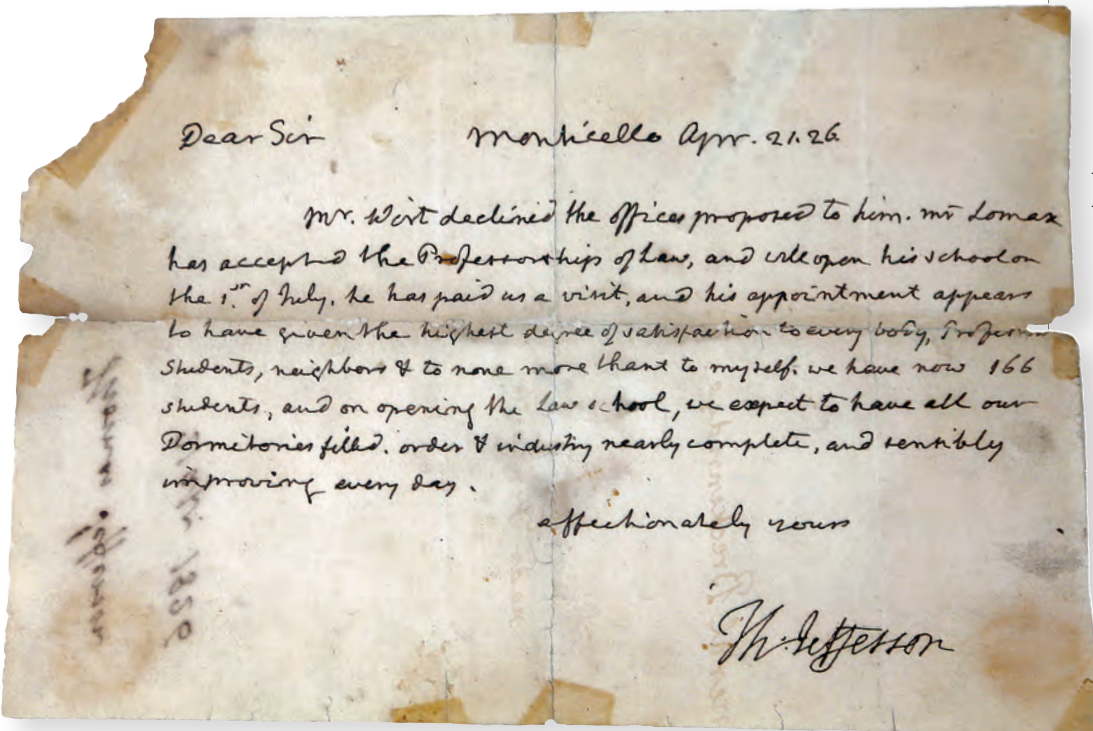 Dear Sir Monticello Apr. 21. 26.
Mr. Wirt declined the offices proposed to him. mr Lomax
has accepted the Professorship of Law, and will open his school on
the 1st of July. he has paid us a visit, and his appointment appears
to have given the highest degree of satisfaction to every body, Professors
Students, neighbors & to none more than to myself. we have now 166
students, and on opening the Law school, we expect to have all our
Dormitories filled. order & industry nearly complete, and sensibly
improving every day.
affectionately yours
Th. Jefferson